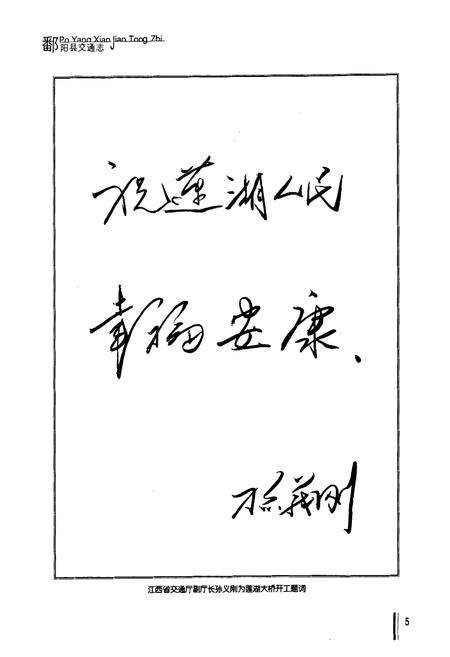 鄱
Po Yang Xian Jiao Tong Zhi
阳县交通志
祝莲湖人民
幸福安康、
孙义刚
江西省交通厅副厅长孙义刚为莲湖大桥开工题词
5